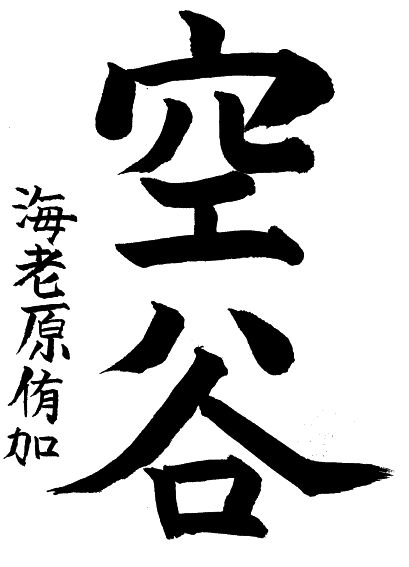 空谷
海老原侑加